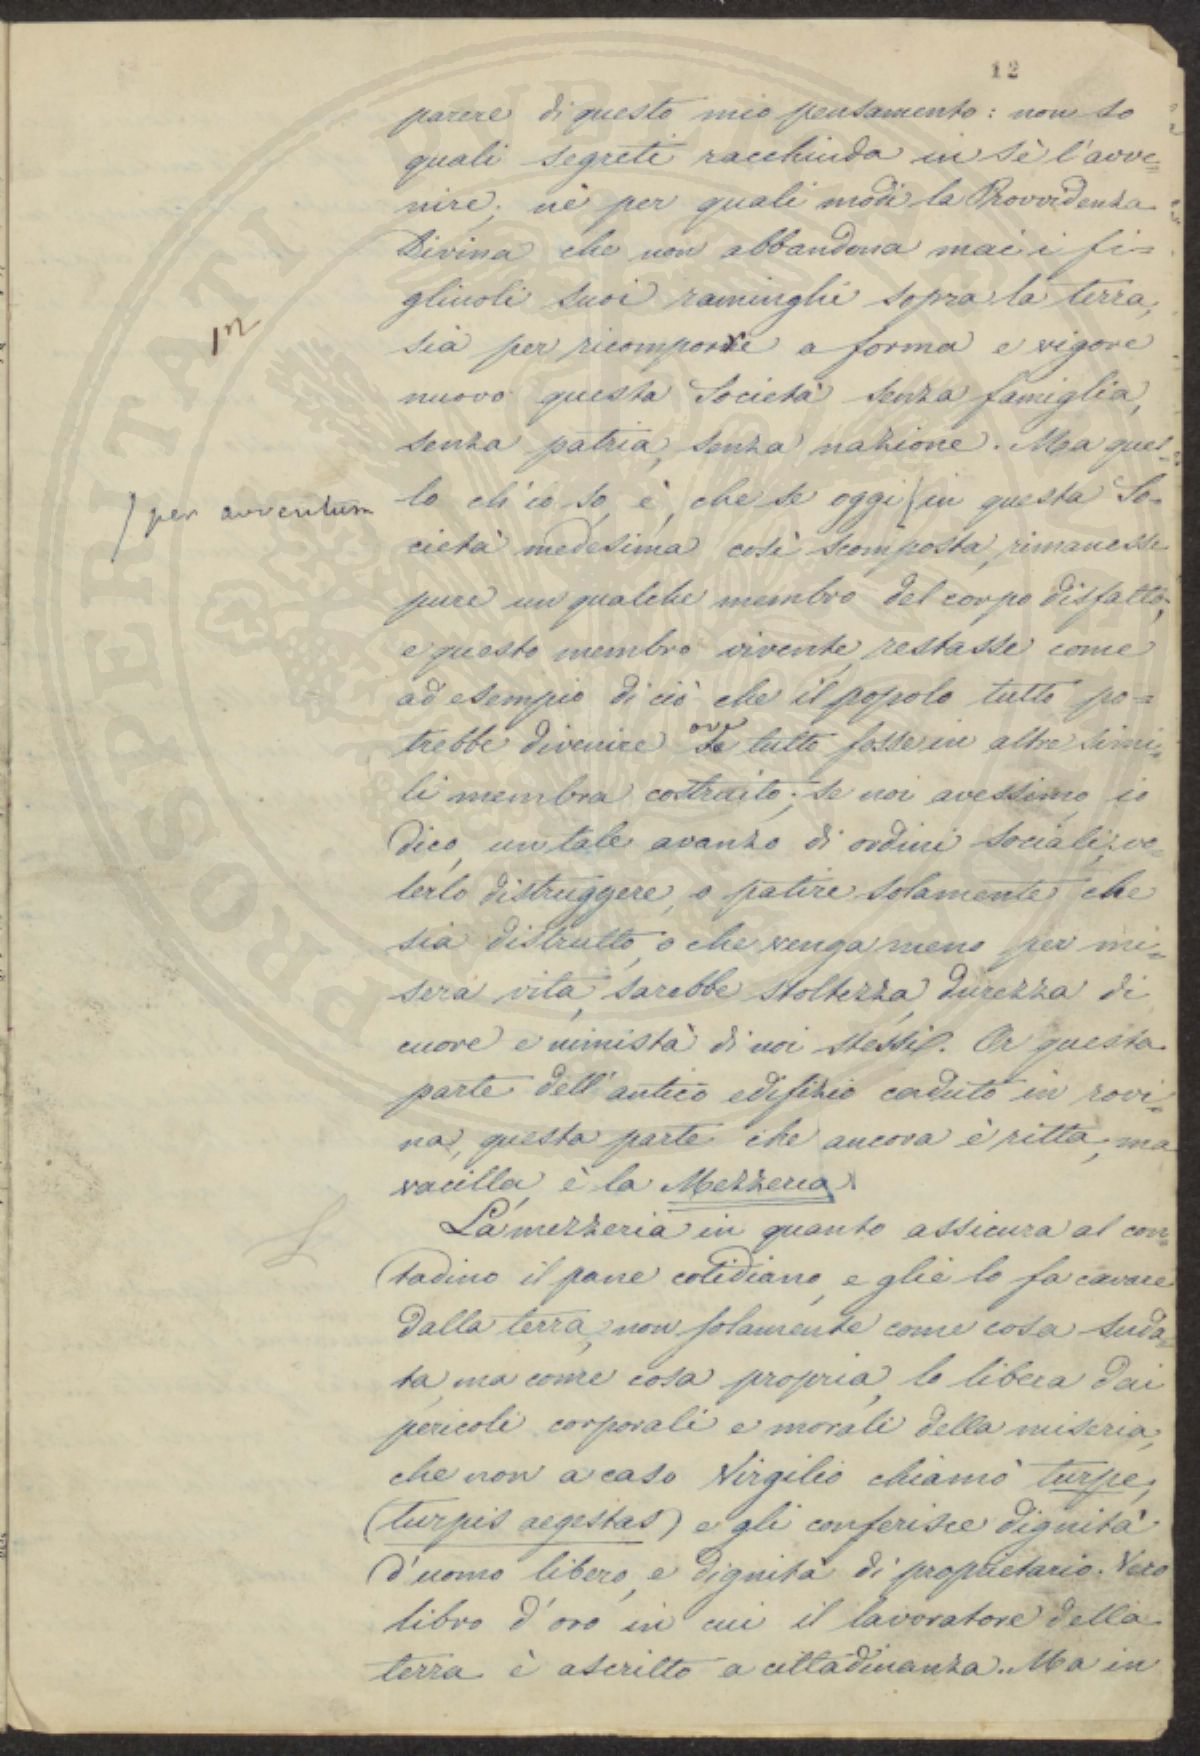 12
parere di questo mio pensamento: non so
quali segreti racchiuda in sè l'avve=
nire; nè per quali modi la Provvidenza
Divina che non abbandona mai i fi=
gliuoli suoi raminghi sopra la terra,
sia per ricomporre a forma e vigore
nuovo questa Società senza famiglia,
senza patria, senza nazione. Ma quel=
lo ch'io so, è, che se oggi / in questa So=
/ per avventura
cietà medesima così scomposta, rimanesse
pure un qualche membro del corpo disfatto,
e questo membro vivente, restasse come
ad esempio di ciò che il popolo tutto po=
trebbe divenire se tutto fosse in altre simi=
ove
li membra costruito; se noi avessimo, io
dico, un tale avanzo di ordini sociali, vo=
lerlo distruggere, o patire solamente che
sia distrutto, o che venga meno per mi=
sera vita, sarebbe stoltezza, durezza di
cuore e nimistà di noi stessi. Or questa
parte dell'antico edifizio caduto in rovi=
na, questa parte che ancora è ritta, ma
vacilla, è la Mezzeria.
La mezzeria in quanto assicura al con=
tadino il pane cotidiano, e glie lo fa cavare
dalla terra, non solamente come cosa suda=
ta, ma come cosa propria, lo libera dai
pericoli corporali e morali della miseria,
che non a caso Virgilio chiamò turpe,
(turpis aegestas) e gli conferisce dignità
d'uomo libero, e dignità di proprietario. Vero
libro d'oro in cui il lavoratore della
terra è ascritto a cittadinanza. Ma in
PROSPERITATI PUBLICAE